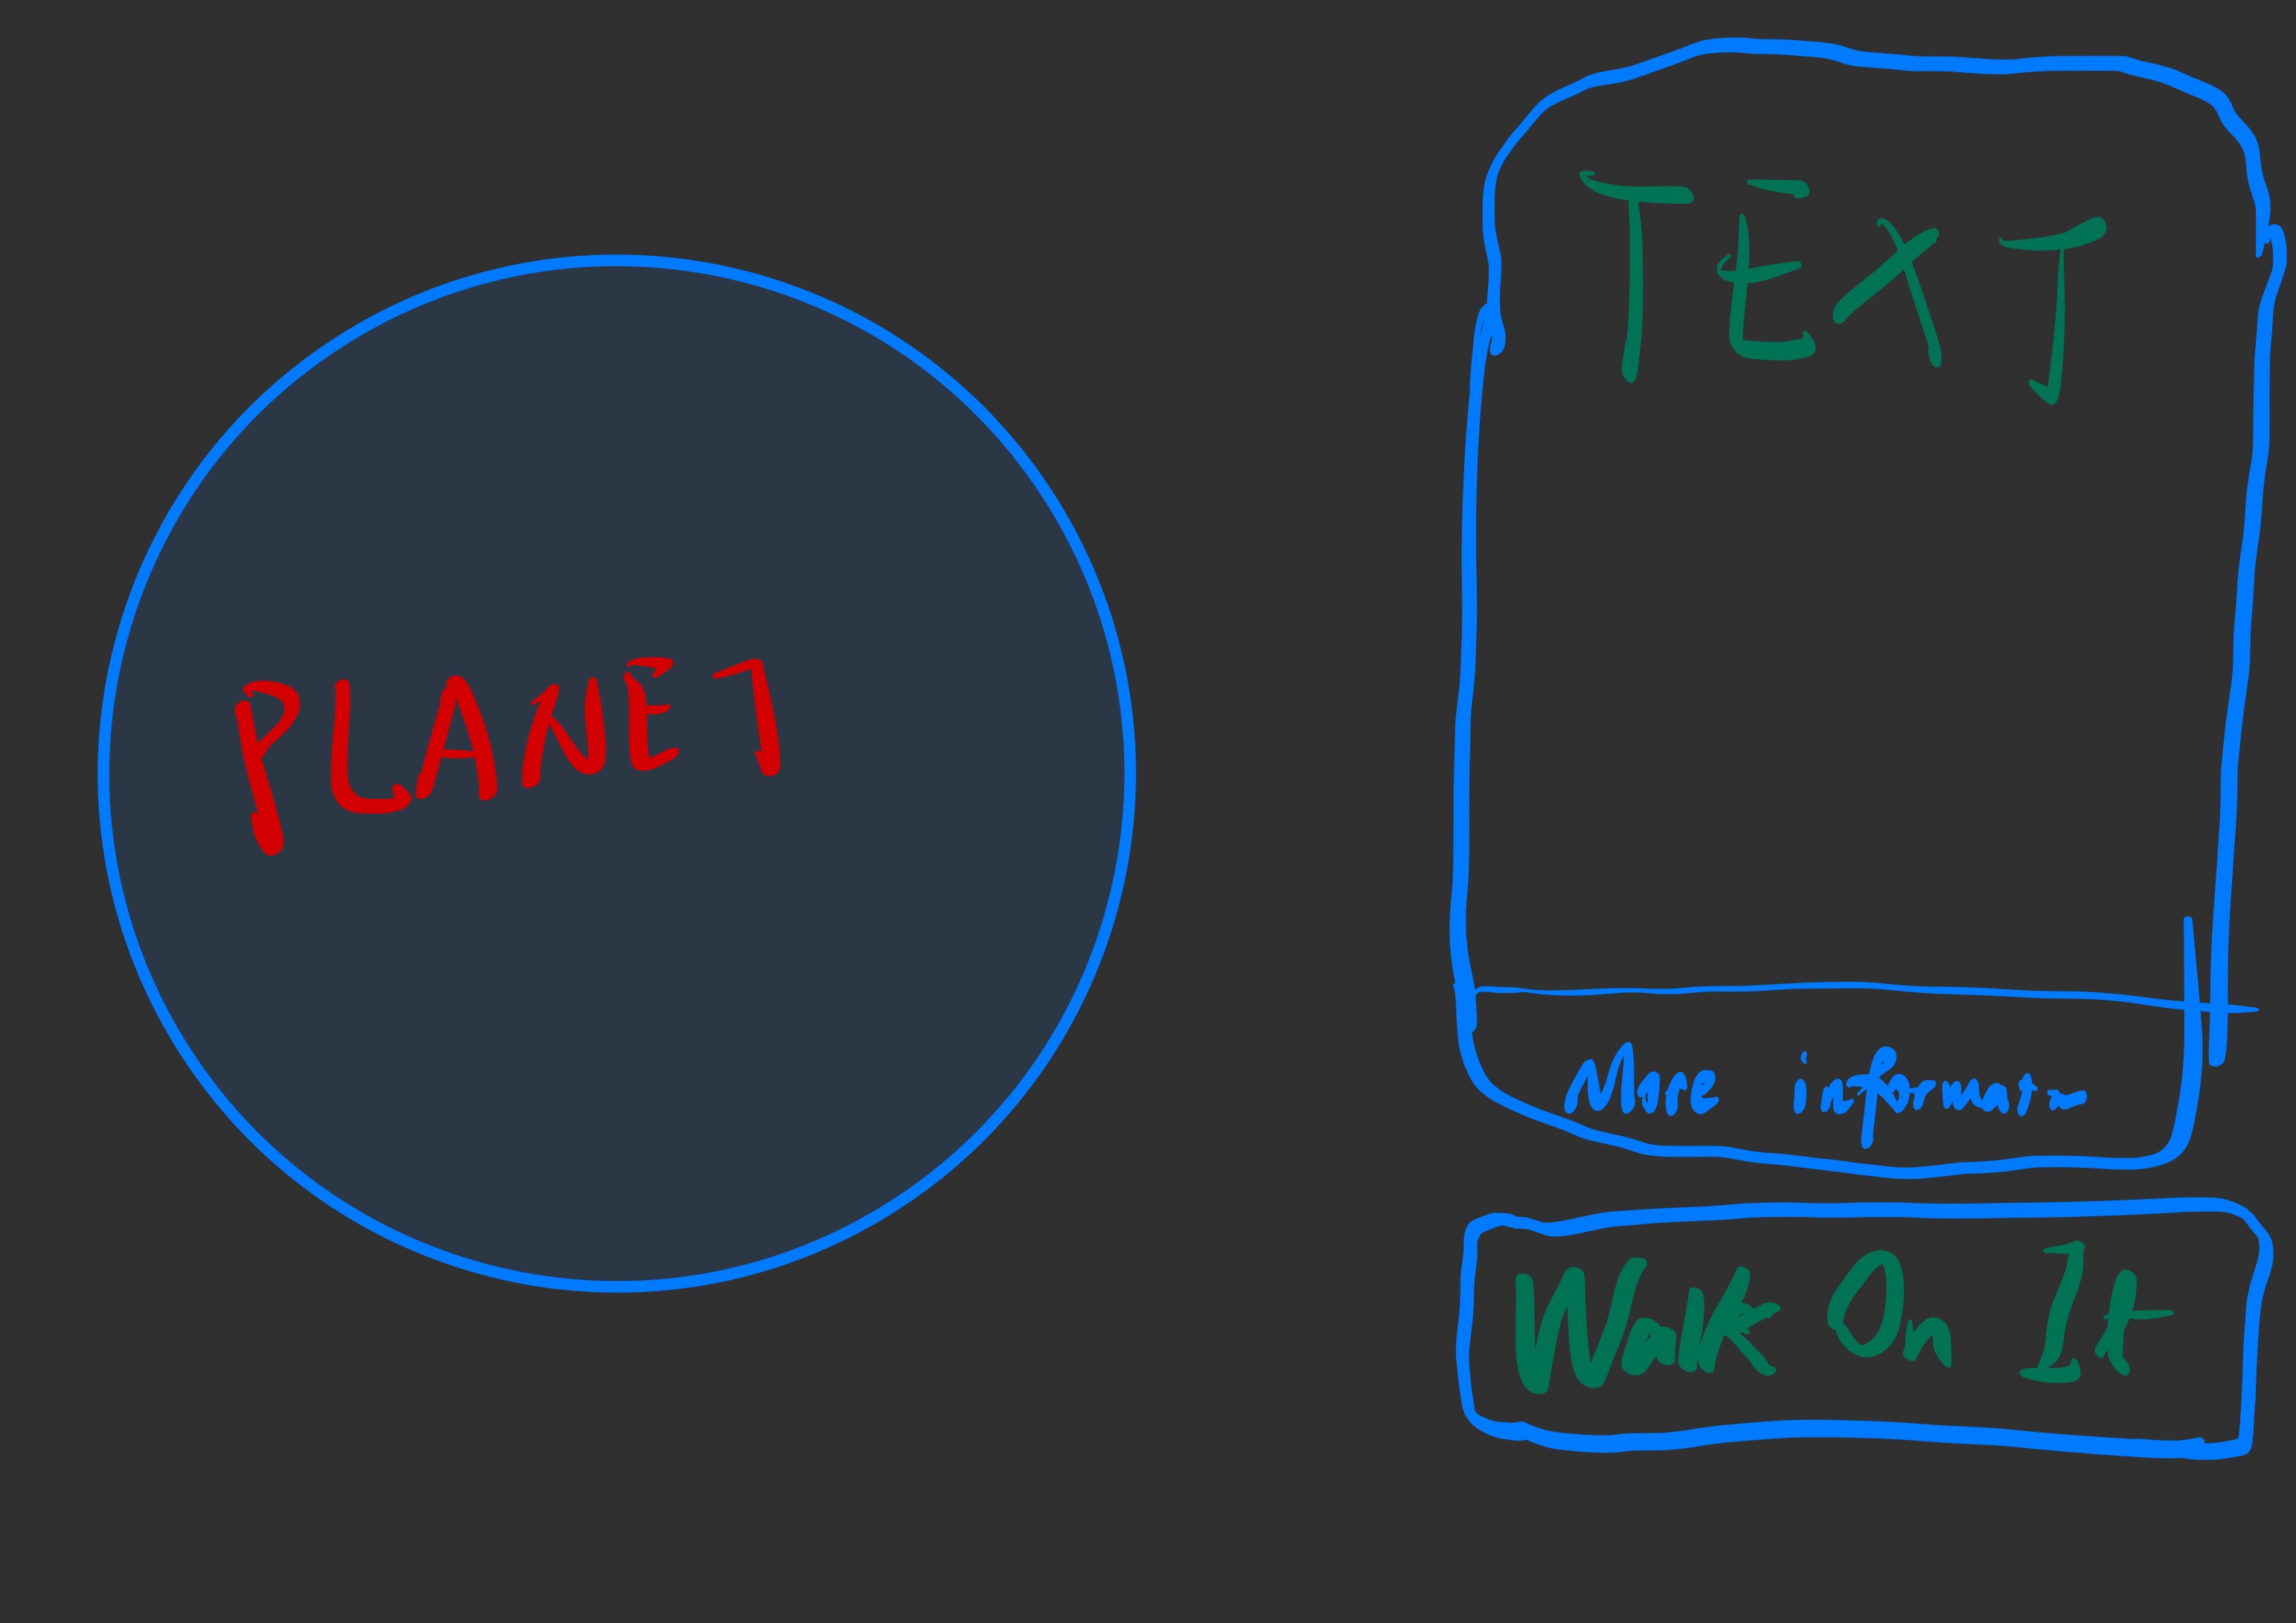 PLANET
TEXT
More informatn
Walk On It